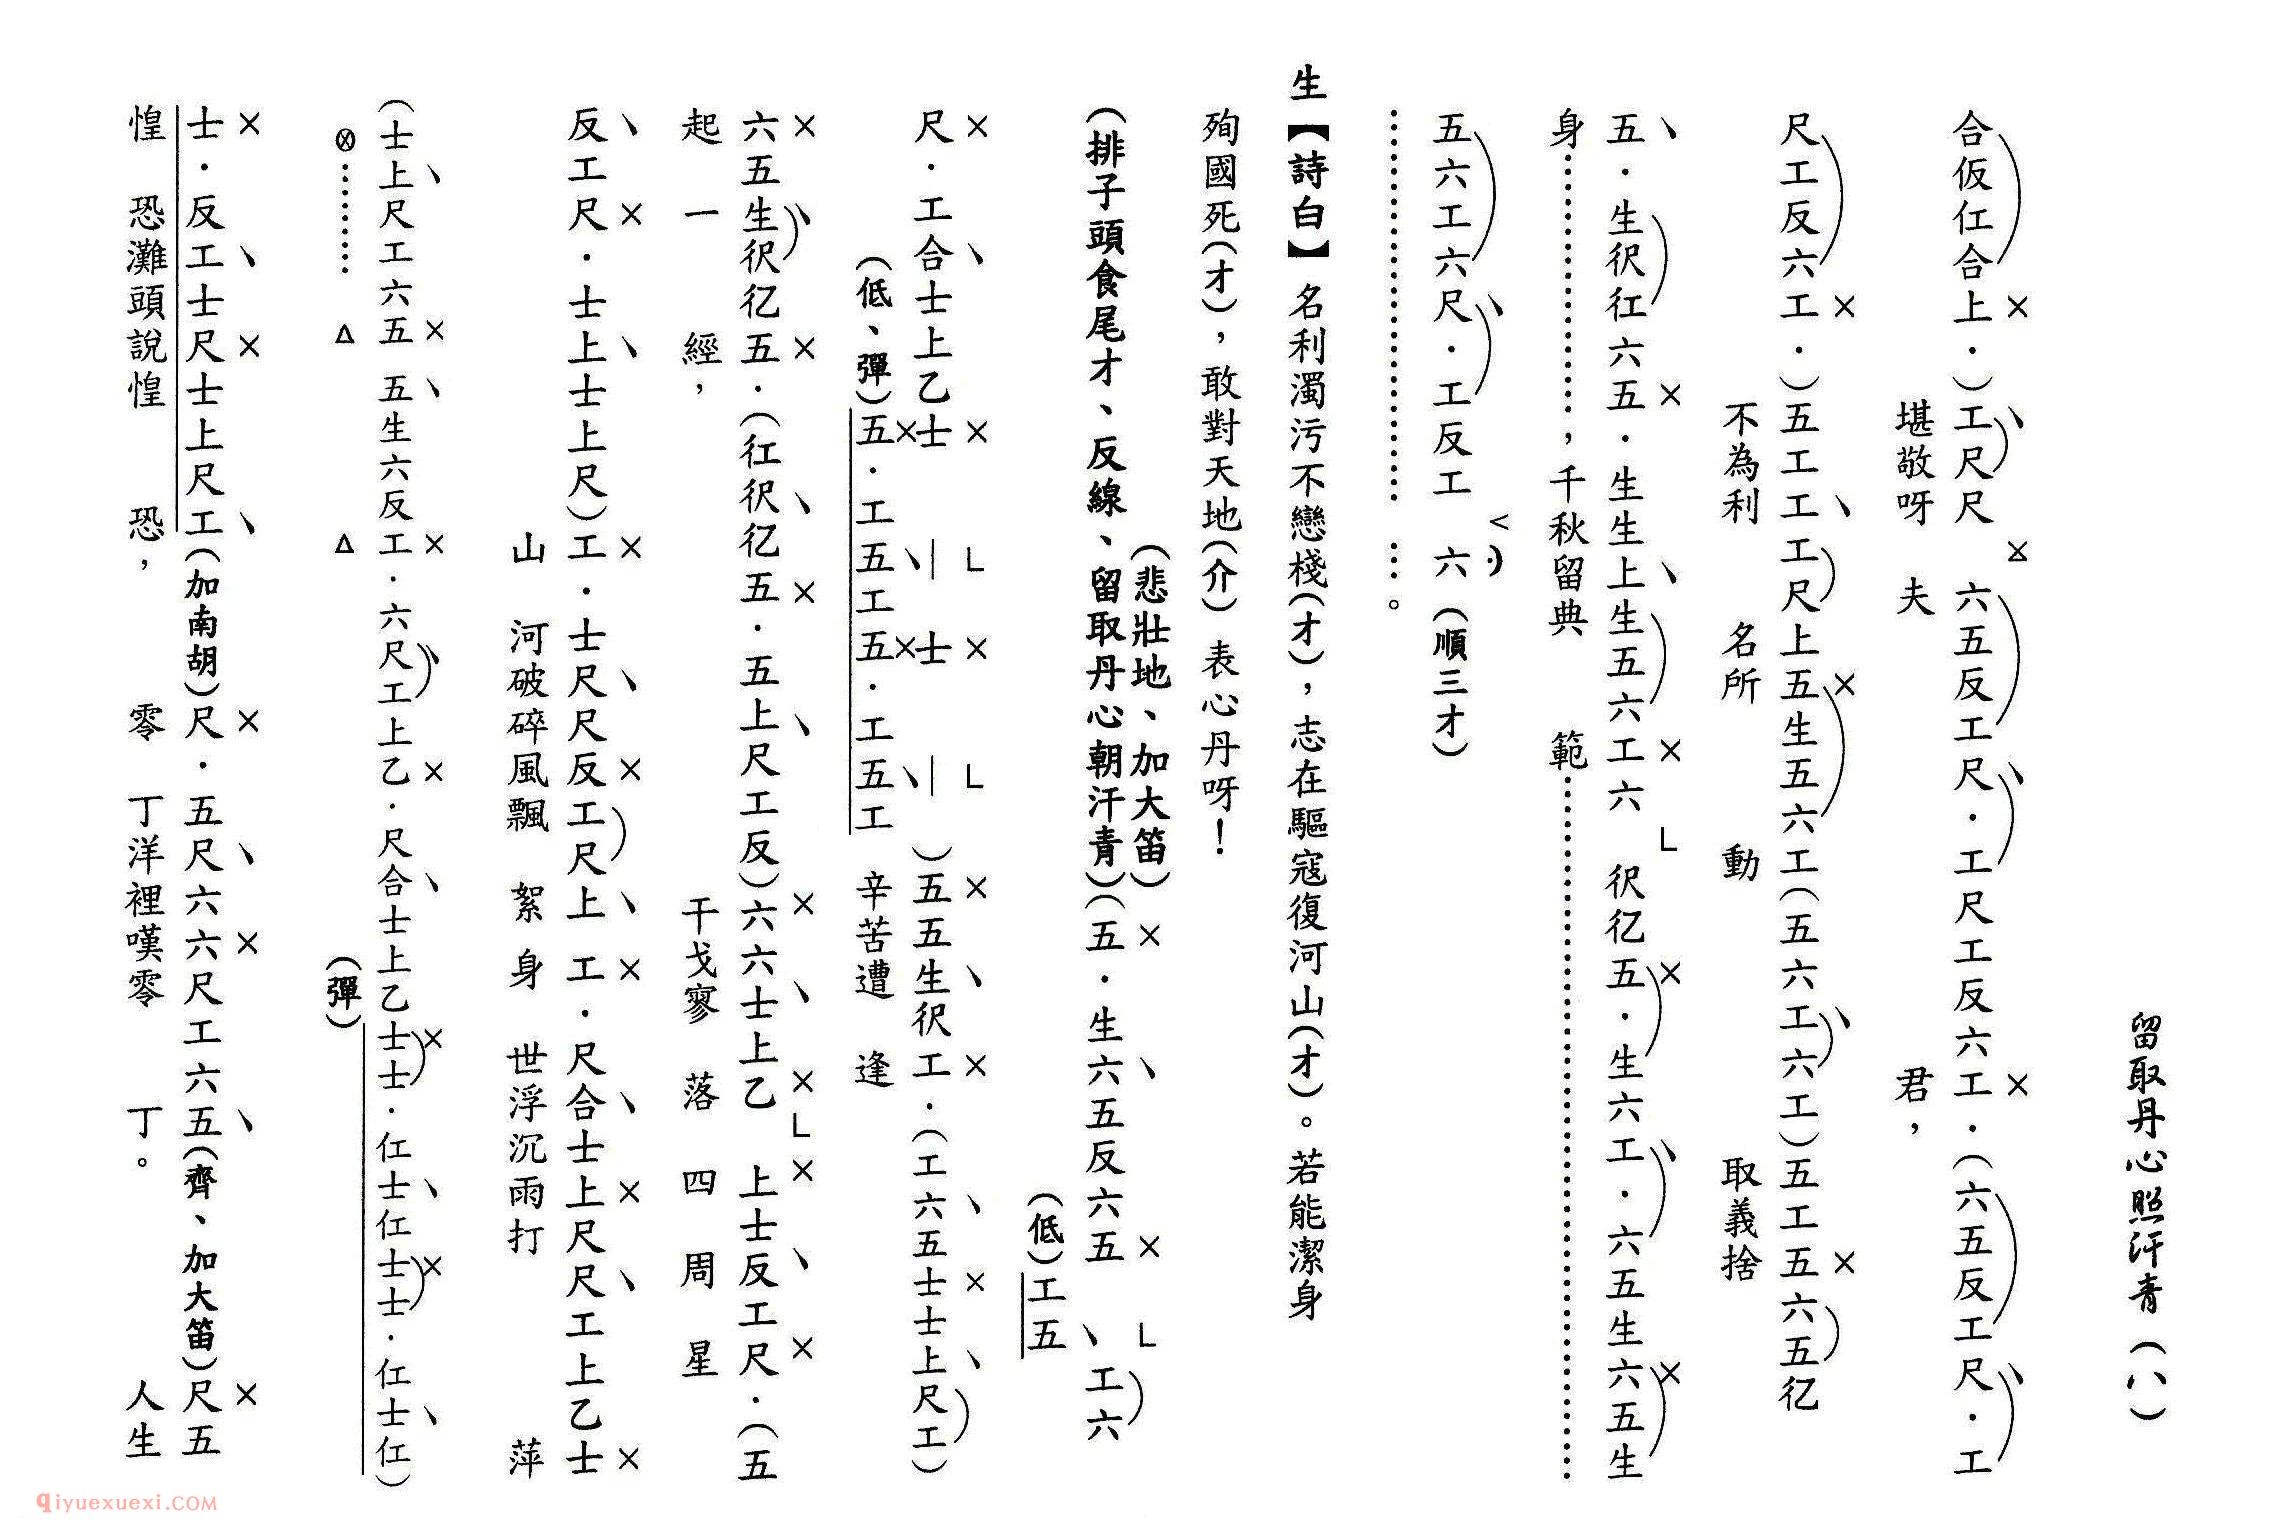 留取丹心照汗青（八）
合仮仜合上．）工尺尺　六五反工尺．工尺工反六工．（六五反工尺．工
堪敬呀　夫　君，
尺工反六工．）五工工工尺上五生五六工（五六工六工）五工五六五亿
不為利　名所　動　取義捨
五．生伬仜六五．生生上生五六工六　伬亿五．生六工．六五生六五生
身⋯⋯⋯⋯⋯⋯，千秋留典　範⋯⋯⋯⋯⋯⋯⋯⋯⋯⋯
五六工六尺．工反工　六（順三才）
⋯⋯⋯⋯⋯⋯⋯⋯　⋯。
生【詩白】名利濁污不戀棧（才），志在驅寇復河山（才）。若能潔身
殉國死（才），敢對天地（介）表心丹呀！
（悲壯地、加大笛）
（排子頭食尾才、反線、留取丹心朝汗青）（五．生六五反六五　工六
（低）工五
尺．工合士上乙士　士　）五五生伬工．（工六五士士上尺工）
（低、彈）五．工五工五．工五工　辛苦遭　逢
六五生伬亿五．（仜伬亿五．五上尺工反）六六士上乙　上士反工尺．（五
起一　經，　干戈寥　落　四　周　星
反工尺．士上士上尺）工．士尺尺反工尺上工．尺合士上尺尺工上乙士
山　河破碎風飄　絮身　世浮沉雨打　萍
（士上尺工六五　五生六反工．六尺工上乙．尺合士上乙士士．仜士仜士士．仜士仜）
（彈）
士．反工士尺士上尺工（加南胡）尺．五尺六六尺工六五（齊、加大笛）尺五
惶　恐灘頭說惶　恐，　零　丁洋裡嘆零　丁。　人生
qiyuexuexi.COM